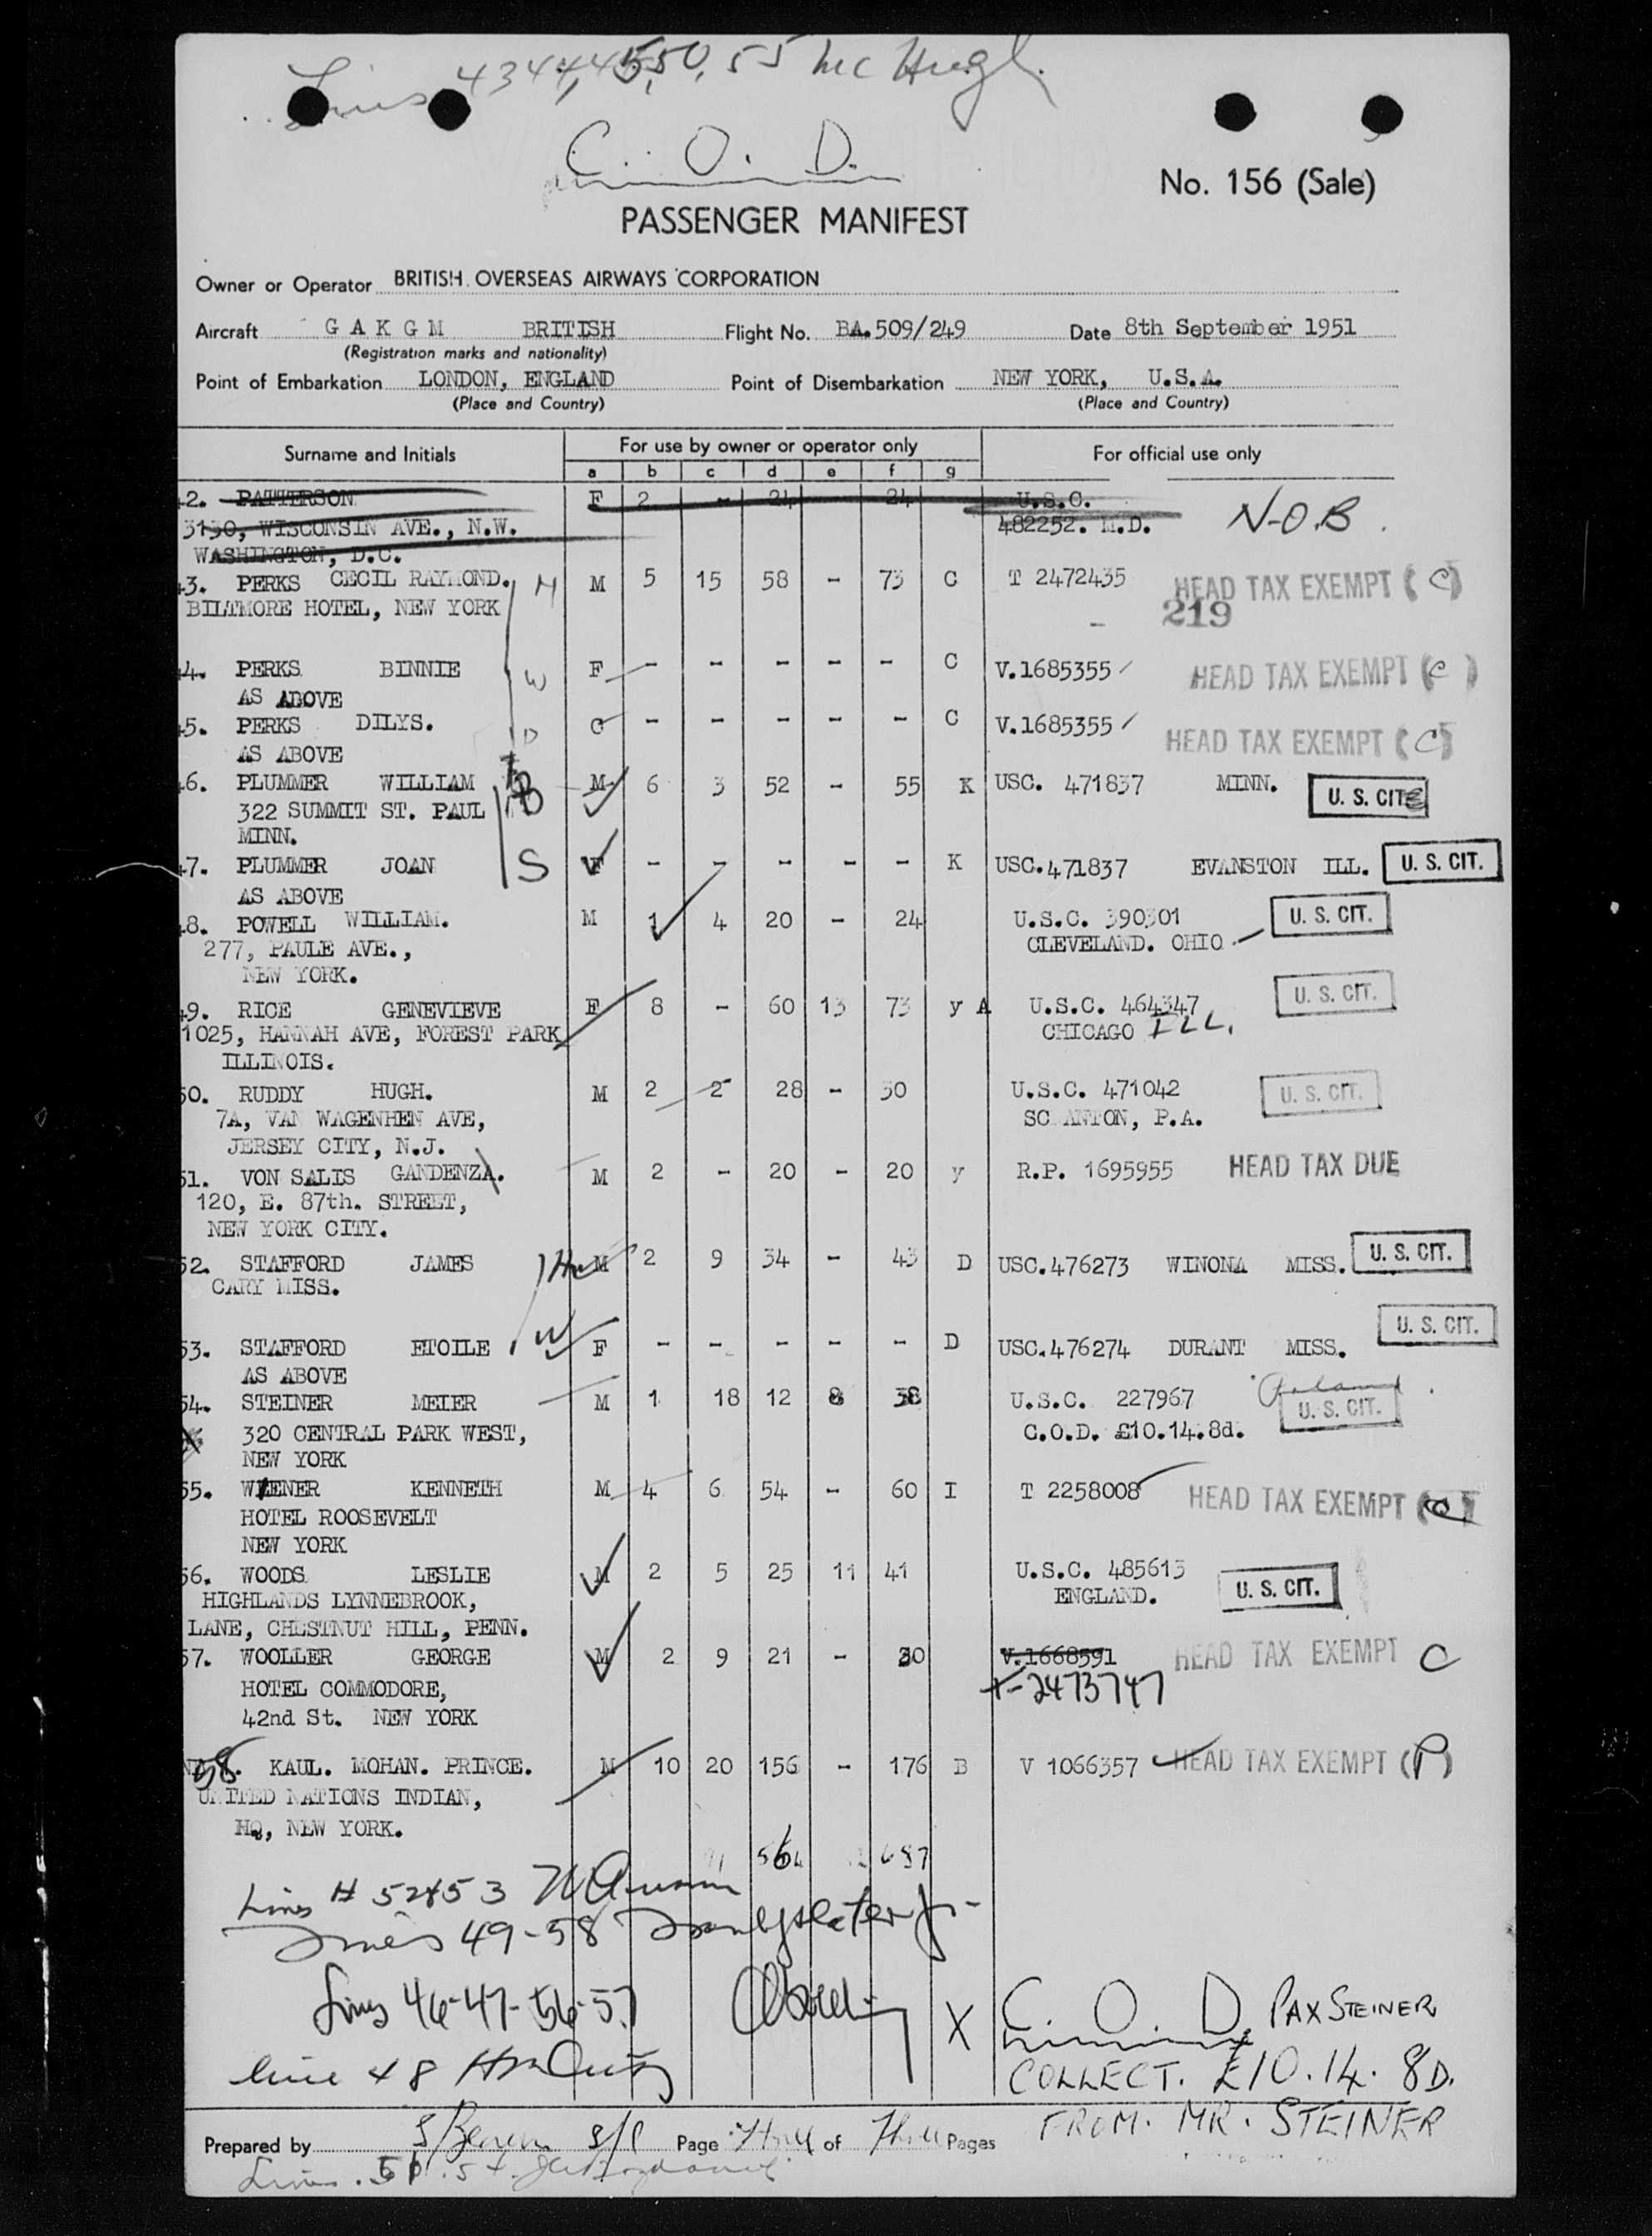 Lines 43 44, 45, 50, 55 McHugh
C. O. D.
No. 156 (Sale)
PASSENGER MANIFEST
Owner or Operator BRITISH OVERSEAS AIRWAYS CORPORATION
Aircraft G A K G M BRITISH Flight No. BA.509/249 Date 8th September 1951
(Registration marks and nationality)
Point of Embarkation LONDON, ENGLAND Point of Disembarkation NEW YORK, U.S.A.
(Place and Country) (Place and Country)
Surname and Initials For use by owner or operator only For official use only
a b c d e f g
2. PATTERSON F 2 - 24 24 U.S.C.
3130, WISCONSIN AVE., N.W. 482252. M.D. N-O.B.
WASHINGTON, D.C.
3. PERKS CECIL RAYMOND. H M 5 15 58 - 73 C T 2472435 HEAD TAX EXEMPT (C)
BILTMORE HOTEL, NEW YORK 219
4. PERKS BINNIE W F - - - - - C V.1685355 HEAD TAX EXEMPT (C)
AS ABOVE
5. PERKS DILYS. D C - - - - - C V.1685355 HEAD TAX EXEMPT (C)
AS ABOVE
6. PLUMMER WILLIAM B M 6 3 52 - 55 K USC. 471837 MINN. U. S. CIT.
322 SUMMIT ST. PAUL
MINN.
7. PLUMMER JOAN S F - - - - - K USC.471837 EVANSTON ILL. U. S. CIT.
AS ABOVE
8. POWELL WILLIAM. M 1 4 20 - 24 U.S.C. 390301 U. S. CIT.
277, PAULE AVE., CLEVELAND. OHIO
NEW YORK.
9. RICE GENEVIEVE F 8 - 60 13 73 y A U.S.C. 464347 U. S. CIT.
1025, HANNAH AVE, FOREST PARK CHICAGO ILL.
ILLINOIS.
50. RUDDY HUGH. M 2 2 28 - 30 U.S.C. 471042 U. S. CIT.
7A, VAN WAGENHEN AVE, SC ANTON, P.A.
JERSEY CITY, N.J.
51. VON SALIS GANDENZA. M 2 - 20 - 20 y R.P. 1695955 HEAD TAX DUE
120, E. 87th. STREET,
NEW YORK CITY.
52. STAFFORD JAMES H M 2 9 34 - 43 D USC.476273 WINONA MISS. U. S. CIT.
CARY MISS.
53. STAFFORD ETOILE W F - - - - - D USC.476274 DURANT MISS. U. S. CIT.
AS ABOVE
54. STEINER MEIER M 1 18 12 8 38 U.S.C. 227967 Poland U. S. CIT.
320 CENTRAL PARK WEST, C.O.D. £10.14.8d.
NEW YORK
55. WIENER KENNETH M 4 6 54 - 60 I T 2258008 HEAD TAX EXEMPT (C)
HOTEL ROOSEVELT
NEW YORK
56. WOODS LESLIE M 2 5 25 11 41 U.S.C. 485613
HIGHLANDS LYNNEBROOK, ENGLAND. U. S. CIT.
LANE, CHESTNUT HILL, PENN.
57. WOOLLER GEORGE M 2 9 21 - 30 V.1668591 HEAD TAX EXEMPT C
HOTEL COMMODORE, T-2473747
42nd St. NEW YORK
58. KAUL. MOHAN. PRINCE. M 10 20 156 - 176 B V 1066357 HEAD TAX EXEMPT (P)
UNITED NATIONS INDIAN,
HQ, NEW YORK.
564 687
Lines # 52 & 53
Lines 49-58
Lines 46-47-56-57
X C. O. D. PAX STEINER
line 48
COLLECT. £10.14.8D.
FROM. MR. STEINER
Prepared by Page Three of Three Pages
Lines